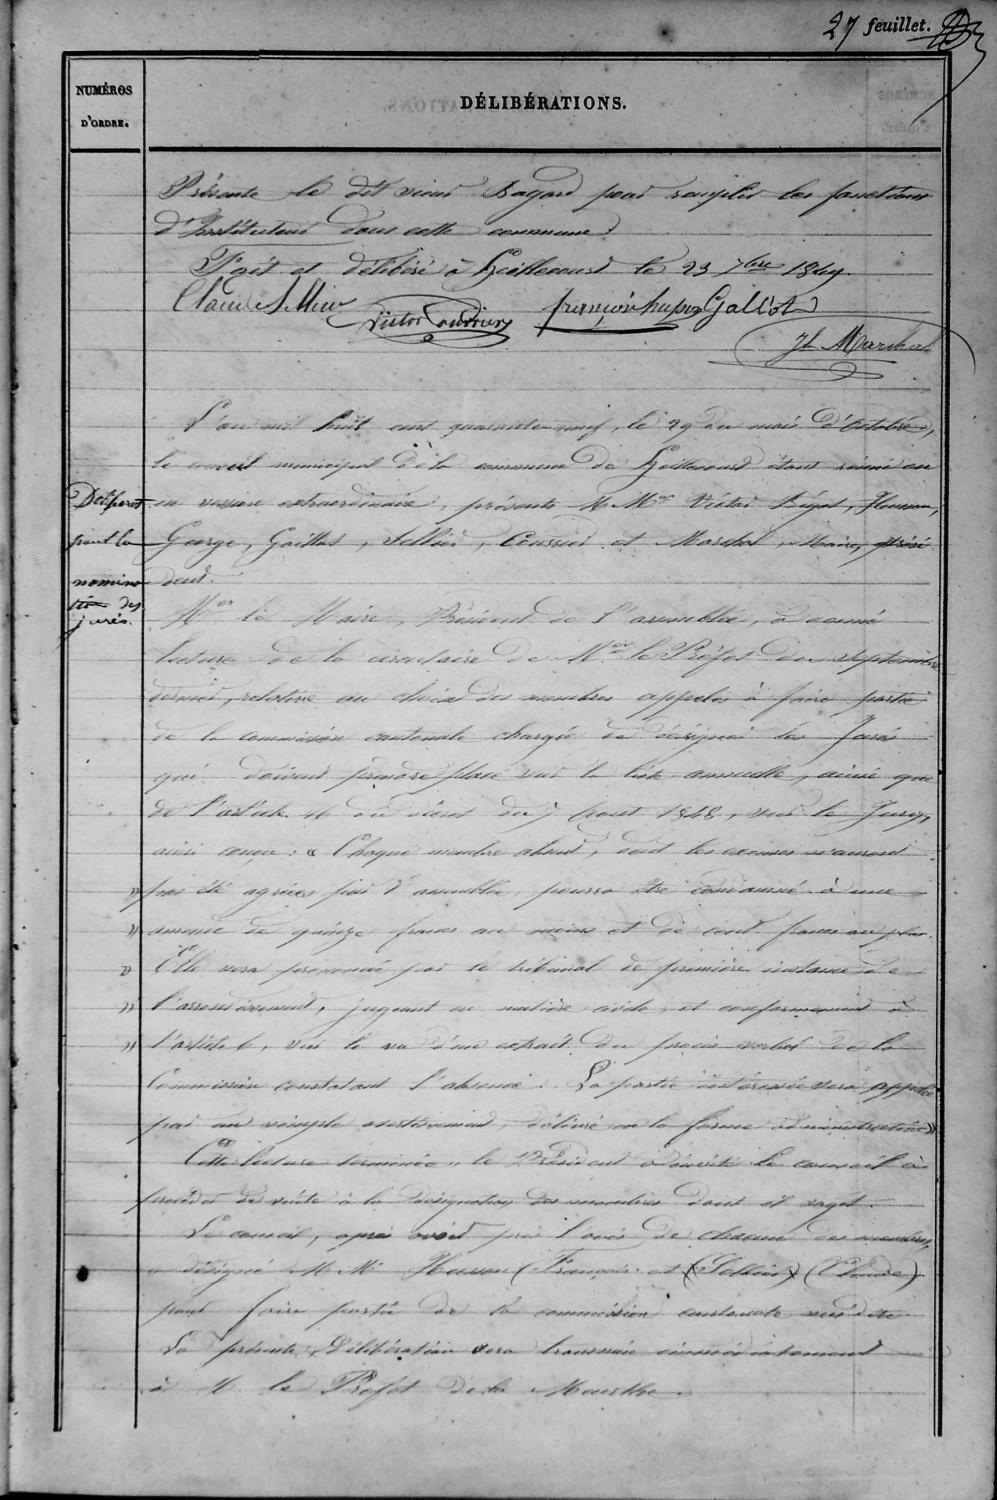 27 feuillet.
NUMÉROS
D'ORDRE.
DÉLIBÉRATIONS.
Présente le dit sieur Bagard pour remplir les fonctions
d'Instituteur dans cette commune
Fait et délibéré à Heillecourt le 23 7bre 1849.
Claude Sellier Victor Coussier françois husson Gallot
Jh Marchal
L'an mil huit cent quarante-neuf, le 29 du mois d'Octobre,
le conseil municipal de la commune de Heillecourt étant réuni en
en session extraordinaire, présents M.Mrs Victor Bigot, Husson,
George, Gaillot, Sellier, Coussier et Marchal, Maire, prési
dent.
Délibérat
pour la
nomina
tion des
jurés.
Mr le Maire, Président de l'assemblée, a donné
lecture de la circulaire de Mr le Préfet du septembre
dernier, relative au choix des membres appelés à faire partie
de la commission cantonale chargée de désigner les Jurés
qui doivent prendre place sur la liste annuelle, ainsi que
de l'article 16 du décret du 7 Aout 1848, sur le Jury,
ainsi conçu : « Chaque membre absent, dont les excuses n'auront
» pas été agréées par l'assemblée, pourra être condamné à une
» amende de quinze francs au moins et de cent francs au plus.
» Elle sera prononcée par le tribunal de première instance de
» l'arrondissement, jugeant en matière civile, et conformément à
» l'article 6, sur le vu d'un extrait du procès verbal de la
Commission constatant l'absence. La partie intéressée sera appelée
par un simple avertissement, délivré en la forme administrative »
Cette lecture terminée, le Président a invité le conseil à
procéder de suite à la désignation des membres dont il sagit.
Le conseil, après avoir pris l'avis de chacun des membres,
a désigné M.M. Husson (François) et (Sellier) (Claude)
pour faire partie de la commission cantonale susdite
La présente délibération sera transmise immédiatement
à M. le Préfet de la Meurthe.